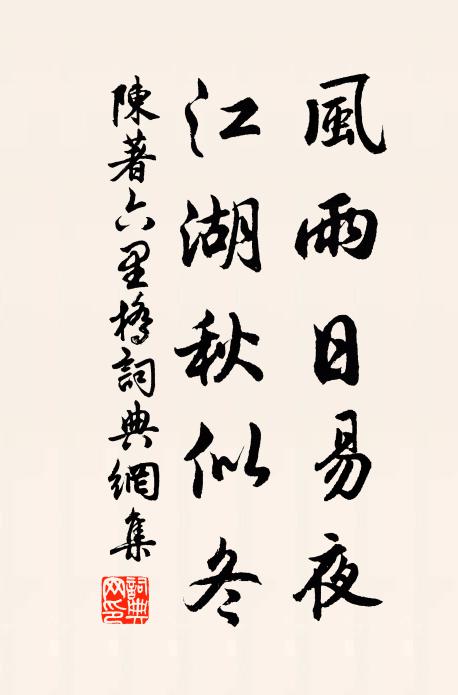 風雨日易夜
江湖秋似冬
陳著六里橋詞典網集
詞典網印